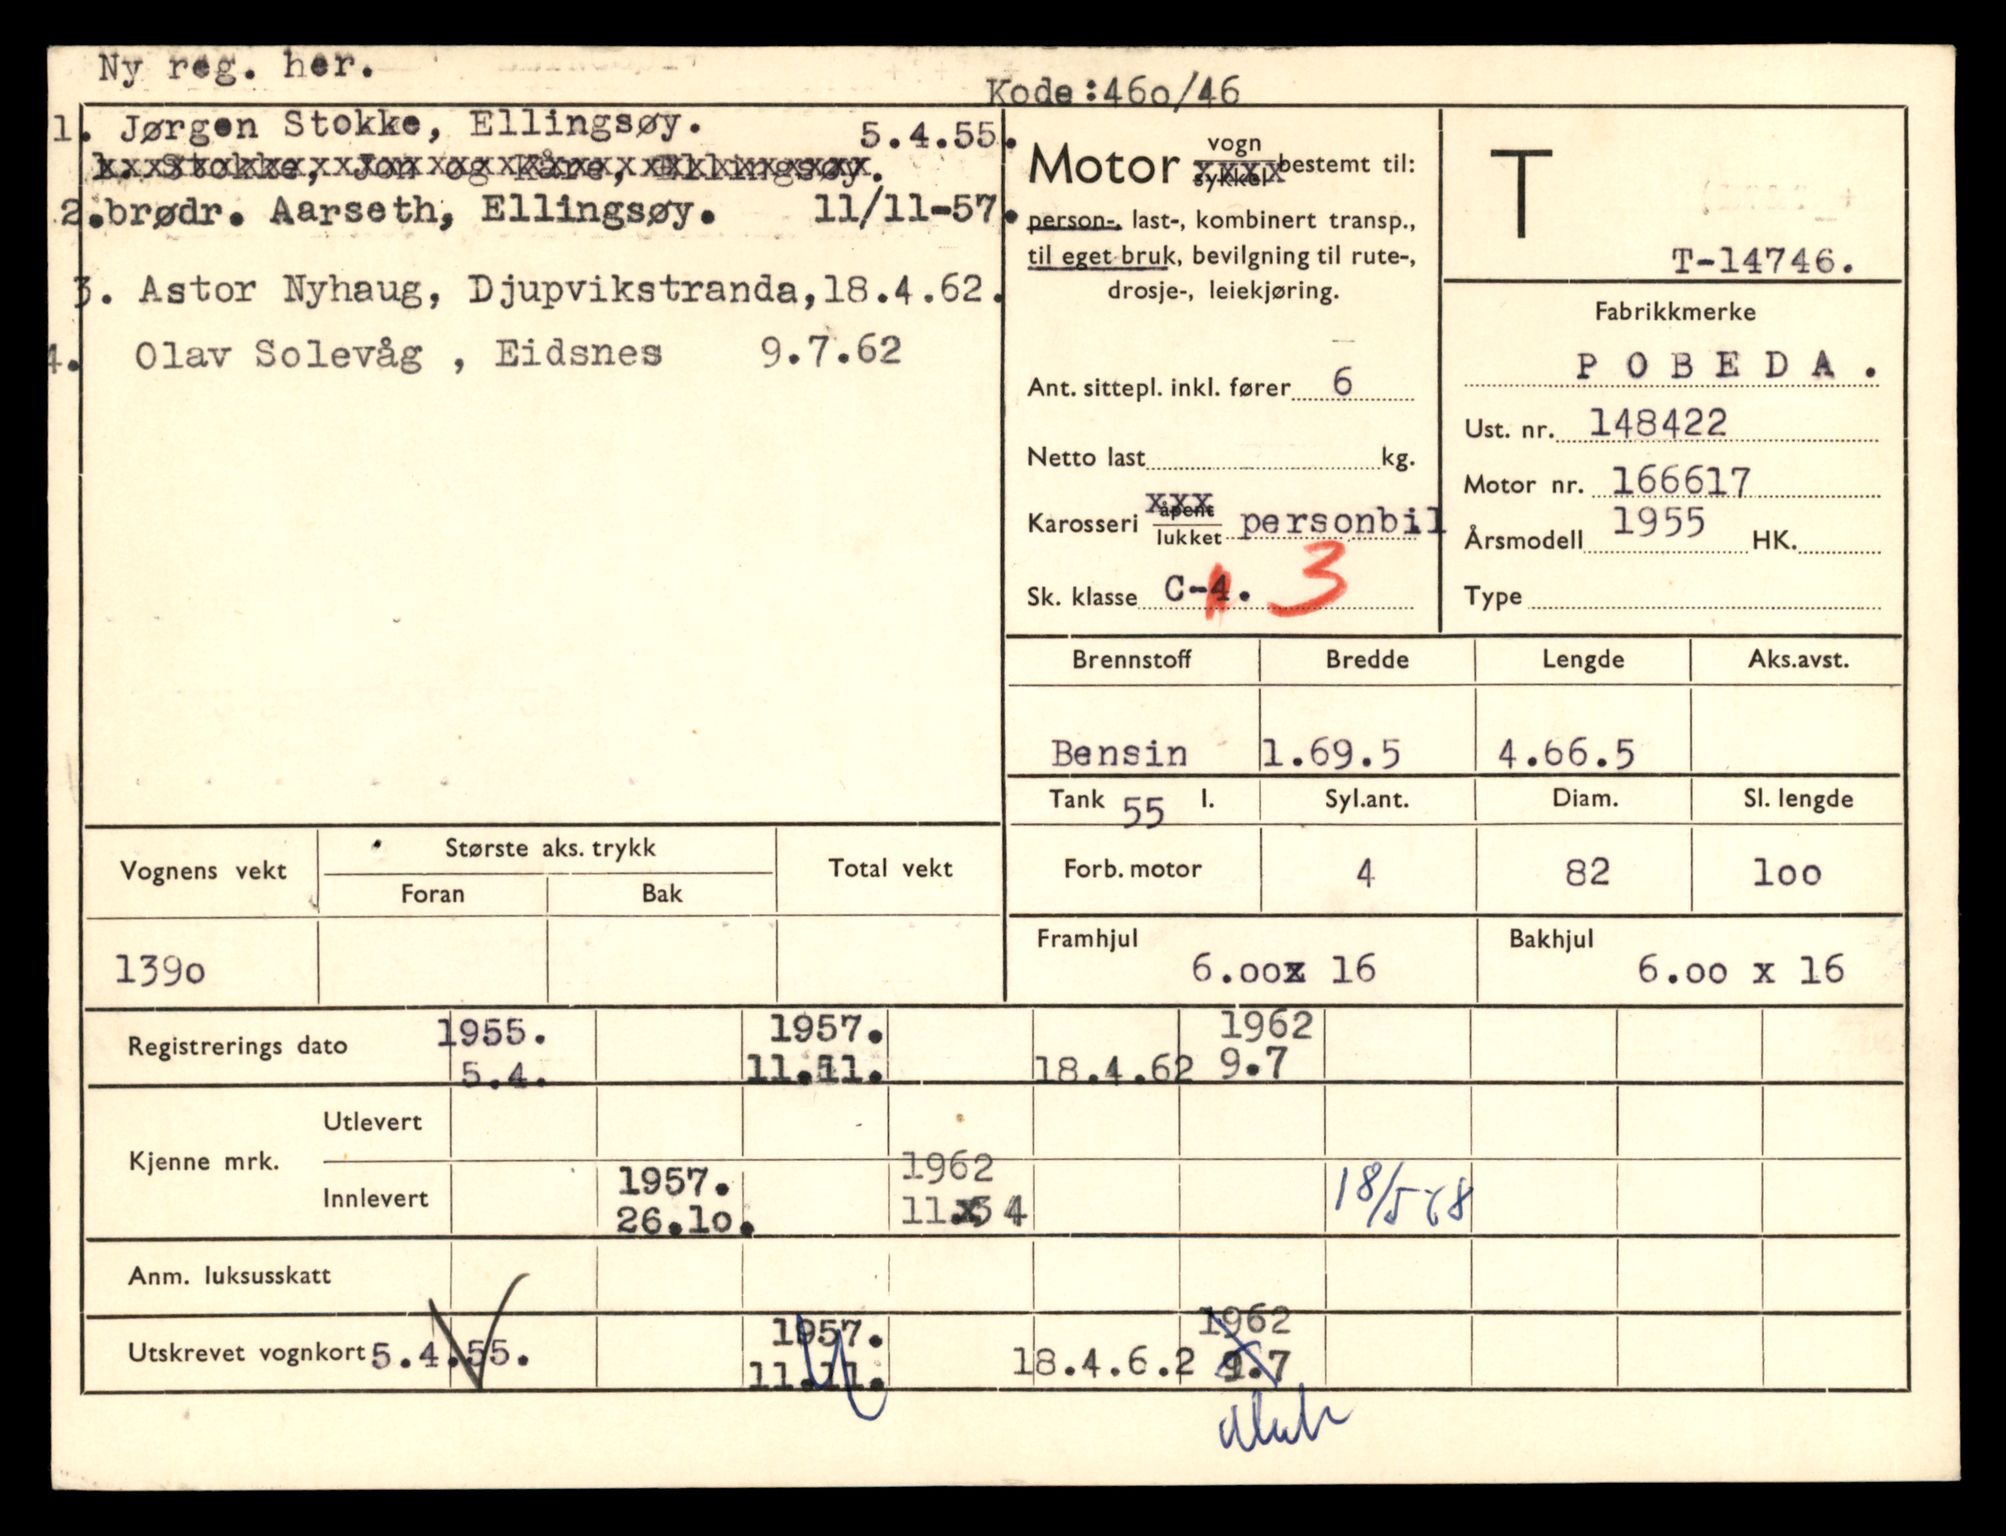 Ny reg. her.
Kode:46o/46
1. Jørgen Stokke, Ellingsøy. 5.4.55.
1. Stokke, Jon og Kåre, Ellingsøy.
2.brødr. Aarseth, Ellingsøy. 11/11-57.
3. Astor Nyhaug, Djupvikstranda,18.4.62.
4. Olav Solevåg , Eidsnes 9.7.62
Motor vogn sykkel bestemt til:
person-, last-, kombinert transp.,
til eget bruk, bevilgning til rute-,
drosje-, leiekjøring.
Ant. sittepl. inkl. fører 6
Netto last kg.
Karosseri åpent lukket personbil
Sk. klasse C-4. 3
T
T-14746.
Fabrikkmerke
POBEDA.
Ust. nr. 148422
Motor nr. 166617
Årsmodell 1955 HK.
Type
Brennstoff Bredde Lengde Aks.avst.
Bensin 1.69.5 4.66.5
Tank 55 l. Syl.ant. Diam. Sl. lengde
Forb. motor 4 82 loo
Framhjul Bakhjul
6.oox 16 6.oo x 16
Vognens vekt Største aks. trykk Total vekt
Foran Bak
139o
Registrerings dato 1955. 1957. 1962
5.4. 11.11. 18.4.62 9.7
Kjenne mrk. Utlevert
Innlevert 1957. 1962 18/5-68
26.lo. 11. 4
Anm. luksusskatt
Utskrevet vognkort 5.4.55. 1957. 18.4.6.2 1962
11.11. 9.7